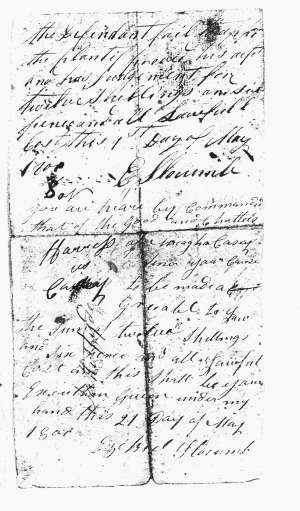 the Defendant fail to appear
the plantif proved his acpt
and has judgement for
twelve Shillings and six
pence and all Lawfull
Cost this 1st Day of May
1800 E Slocumb
you are heare by Commanded
that of the good and Chattels
Harvess of Casey
vs find your
Casey to be made
Greable to Law
the sum of twelve Shillings
and Six pence and all Lawful
Cost and this shall be your
Execution given under my
hand this 21 Day of May
1800
Ezekiel Slocumb